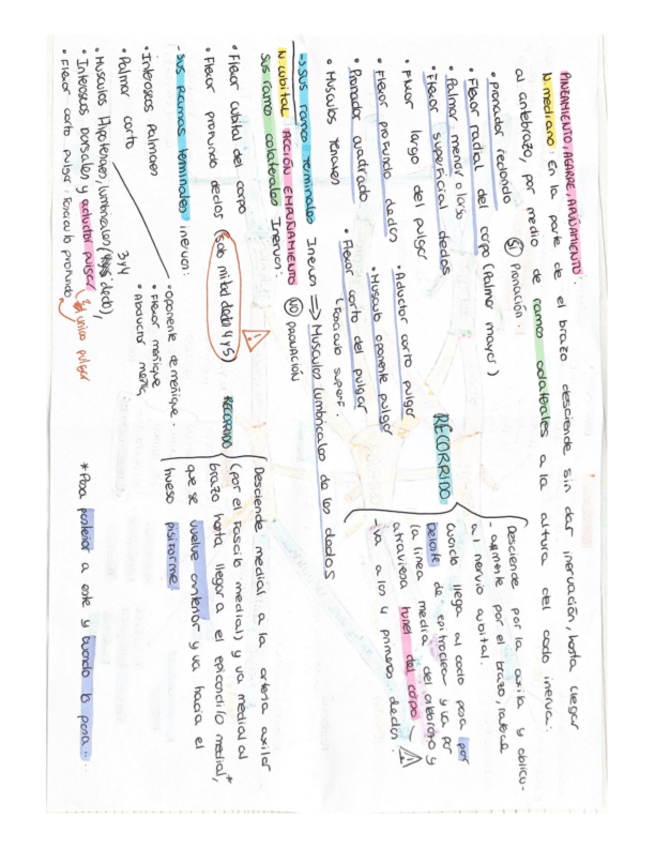 PINZAMIENTO, AGARRE, APUÑAMIENTO:
N mediano: En la parte de el brazo desciende sin dar inervación, hasta llegar
al antebrazo, por medio de ramos colaterales a la altura del codo inerva:
• pronador redondo (SI) Pronación.
• Flexor radial del carpo (Palmar mayor)
• Palmar menor o largo
• Flexor superficial dedos
• Flexor largo del pulgar
• Flexor profundo dedos
• Pronador cuadrado
• Musculos Tenares
• Aductor corto pulgar
• Musculo oponente pulgar
• Flexor corto del pulgar
(Fasciculo superf.
RECORRIDO
Desciende por la axila y oblicu-
amente por el brazo, lateral
al nervio cubital.
Cuando llega al codo pasa por
delante de epitroclea y va por
la linea media del antebrazo y
atraviesa tunel del carpo
va a los 4 primeros dedos.
→ sus ramos terminales Inervan ⇒ Musculos lumbricales de los dedos
N cubital ACCIÓN EMPUÑAMIENTO (NO) PRONACIÓN
Sus ramos colaterales Inervan:
• Flexor cubital del carpo
• Flexor profundo dedos (solo mitad dedo 4 y 5)
- Sus Ramas terminales inervan:
• Interoseos Palmares
• Palmar corto
• Musculos Hipotenares, lumbricales (dedo), 3 y 4
• Interoseos dorsales y aductor pulgar
• Flexor corto pulgar: Fasciculo profundo
unico pulgar
• oponente de meñique
• Flexor meñique
• Abductor meñiq
RECORRIDO
Desciende medial a la arteria axilar
(por el fasciculo medial) y va medial al
brazo hasta llegar a el epicondilo medial,*
que se vuelve anterior y va hacia el
hueso pisiforme
*Pasa posterior a este y cuando lo pasa..